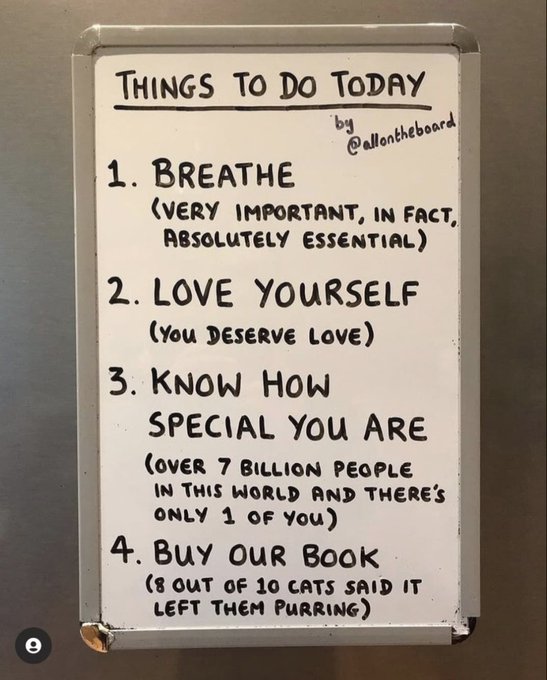 THINGS TO DO TODAY
by
@allontheboard
1. BREATHE
(VERY IMPORTANT, IN FACT,
ABSOLUTELY ESSENTIAL)
2. LOVE YOURSELF
(YOU DESERVE LOVE)
3. KNOW HOW
SPECIAL YOU ARE
(OVER 7 BILLION PEOPLE
IN THIS WORLD AND THERE'S
ONLY 1 OF YOU)
4. BUY OUR BOOK
(8 OUT OF 10 CATS SAID IT
LEFT THEM PURRING)